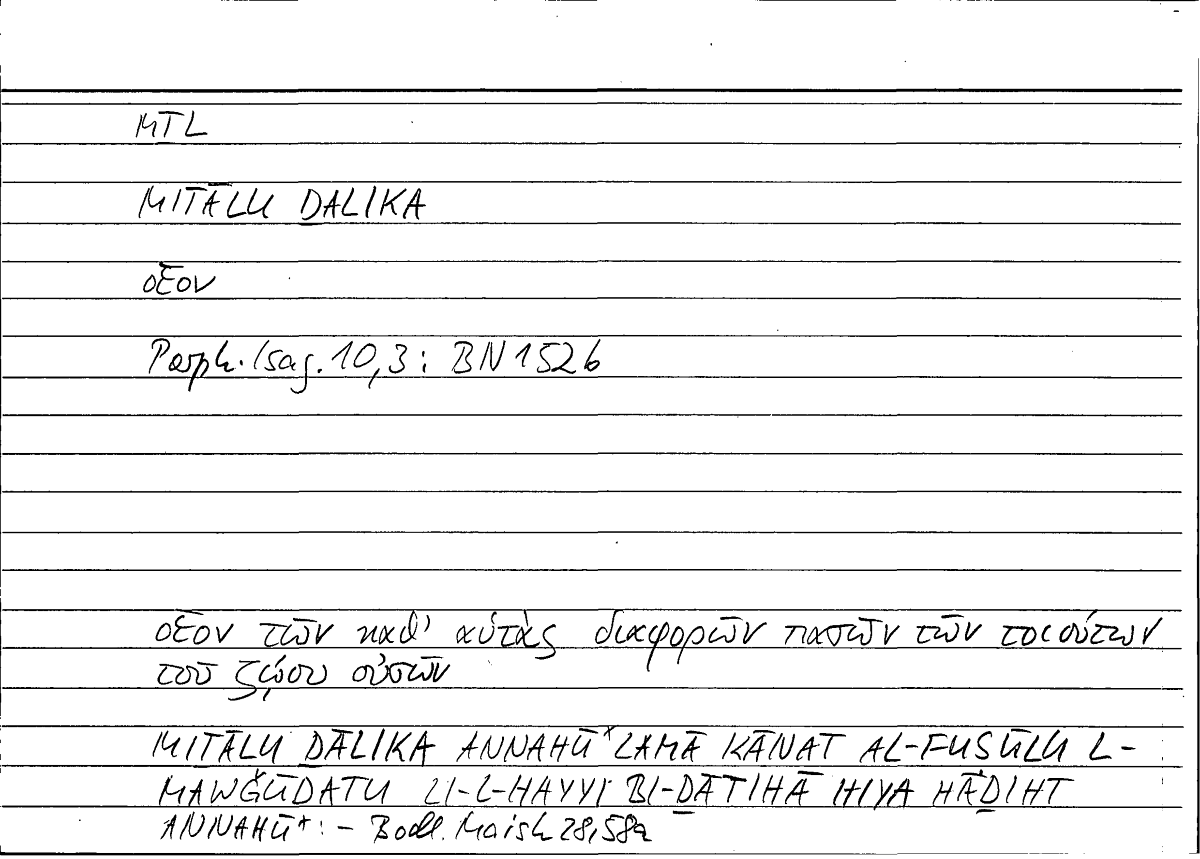 MṮL
MIṮĀLU ḎALIKA
οἷον
Porph. Isag. 10,3: BN 152b
οἷον τῶν καθ' αὑτὰς διαφορῶν πασῶν τῶν τοιούτων
τοῦ ζῴου οὐσῶν
MIṮĀLU ḎĀLIKA ANNAHŪ* LAMĀ KĀNAT AL-FUSŪLU L-
MAWǦŪDATU LI-L-HAYYI BI-ḎĀTIHĀ HIYA HĀḎIHT
ANNAHŪ*: – Bodl. Marsh 28,58a